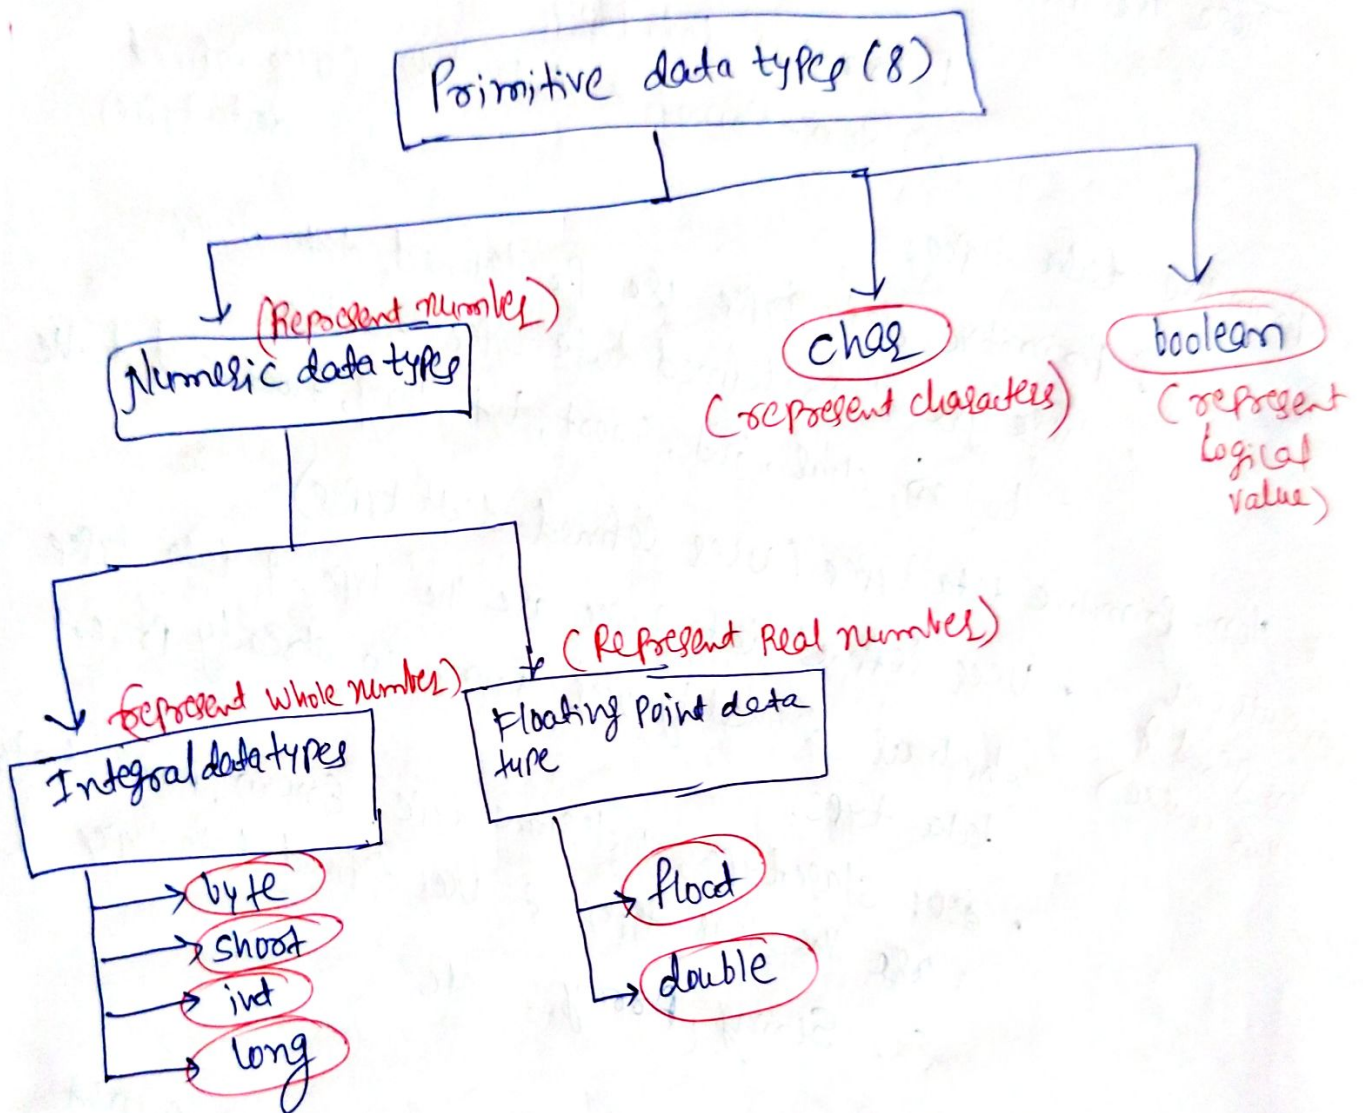 Primitive data types (8)
(Represent number)
Numeric data types
char
(represent characters)
boolean
(represent
logical
value)
(represent whole number)
Integral data types
byte
short
int
long
(Represent Real number)
Floating Point data
type
float
double